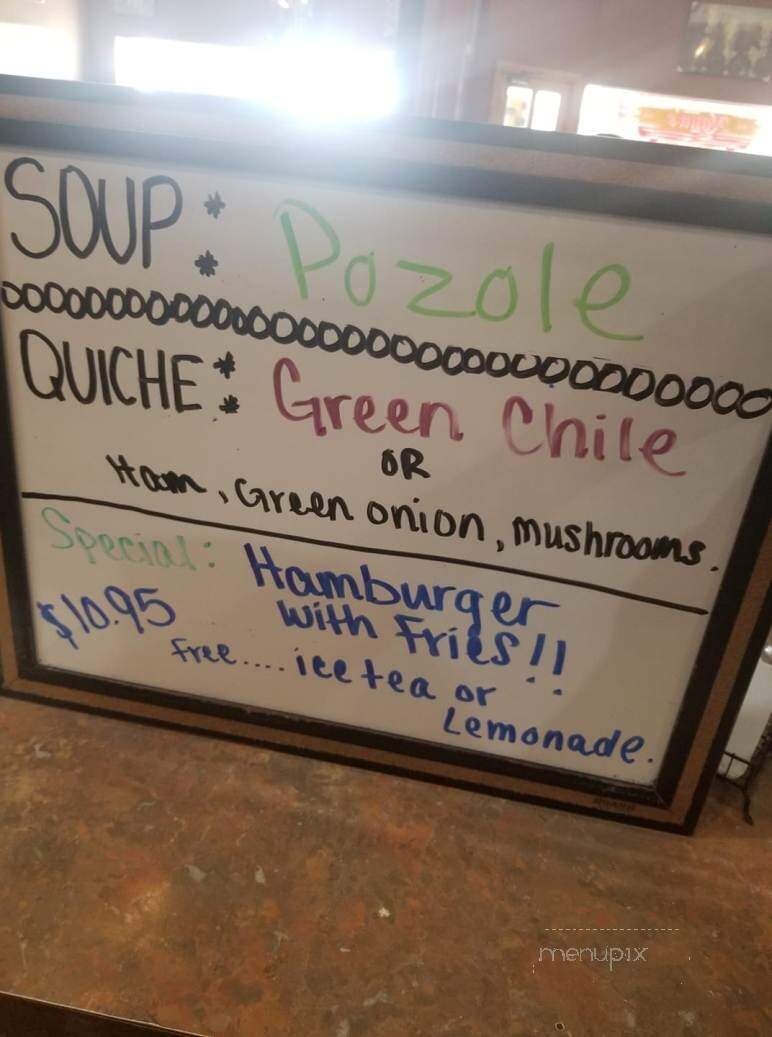 SOUP: Pozole
QUICHE: Green Chile
OR
Ham, Green onion, mushrooms.
Special: Hamburger
$10.95 with Fries!!
Free.... ice tea or
Lemonade.
menupix